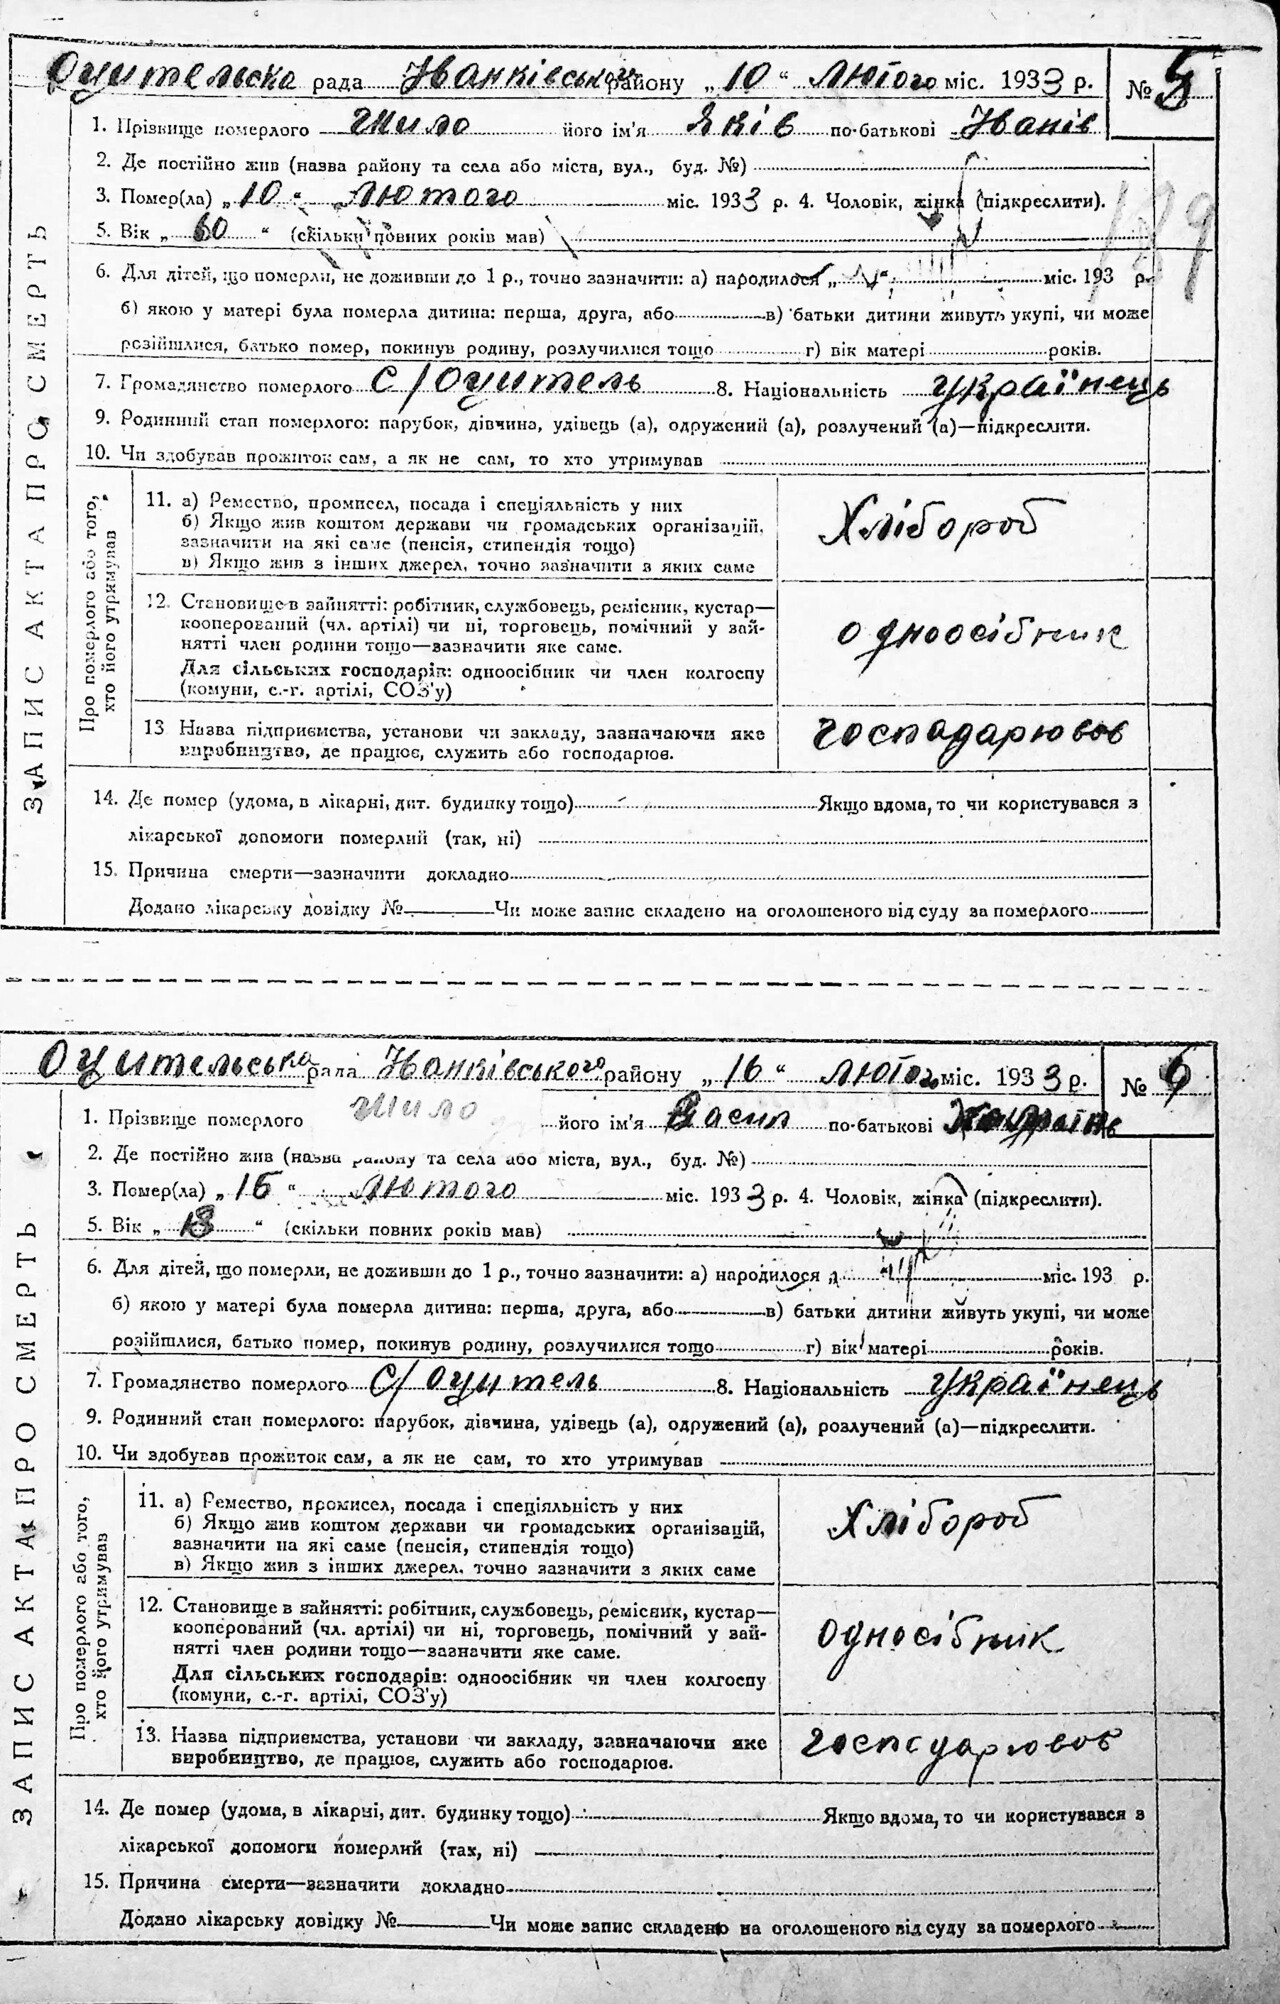 Оцительска рада Іванківського району „ 10 “ лютого міс. 1933 р. № 5
1. Прізвище померлого Шило його ім'я Яків по-батькові Іванів
2. Де постійно жив (назва району та села або міста, вул., буд. №)
3. Помер(ла) „ 10 “ лютого міс. 1933 р. 4. Чоловік, жінка (підкреслити).
5. Вік „ 60 “ (скільки повних років мав)
189
6. Для дітей, що померли, не доживши до 1 р., точно зазначити: а) народилося „ “ міс. 193 р.
б) якою у матері була померла дитина: перша, друга, або в) батьки дитини живуть укупі, чи може
розійшлися, батько помер, покинув родину, розлучилися тощо г) вік матері років.
7. Громадянство померлого с/Оцитель 8. Національність українець
9. Родинний стан померлого: парубок, дівчина, удівець (а), одружений (а), розлучений (а)—підкреслити.
10. Чи здобував прожиток сам, а як не сам, то хто утримував
ЗАПИС АКТА ПРО СМЕРТЬ
Про померлого або того,
хто його утримував
11. а) Ремество, промисел, посада і спеціяльність у них
б) Якщо жив коштом держави чи громадських організацій,
зазначити на які саме (пенсія, стипендія тощо)
в) Якщо жив з інших джерел, точно зазначити з яких саме
Хлібороб
12. Становище в зайнятті: робітник, службовець, ремісник, кустар—
кооперований (чл. артілі) чи ні, торговець, помічний у зай-
нятті член родини тощо—зазначити яке саме.
Для сільських господарів: одноосібник чи член колгоспу
(комуни, с.-г. артілі, СОЗ'у)
одноосібник
13 Назва підприємства, установи чи закладу, зазначаючи яке
виробництво, де працює, служить або господарює.
господарював
14. Де помер (удома, в лікарні, дит. будинку тощо) Якщо вдома, то чи користувався з
лікарської допомоги померлий (так, ні)
15. Причина смерти—зазначити докладно
Додано лікарську довідку № Чи може запис складено на оголошеного від суду за померлого
Оцительська рада Іванківського району „ 16 “ лютого міс. 1933 р. № 6
1. Прізвище померлого Шило його ім'я Васил по-батькові
2. Де постійно жив (назва району та села або міста, вул., буд. №)
3. Помер(ла) „ 16 “ лютого міс. 1933 р. 4. Чоловік, жінка (підкреслити).
5. Вік „ 18 “ (скільки повних років мав)
6. Для дітей, що померли, не доживши до 1 р., точно зазначити: а) народилося міс. 193 р.
б) якою у матері була померла дитина: перша, друга, або в) батьки дитини живуть укупі, чи може
розійшлися, батько помер, покинув родину, розлучилися тощо г) вік матері років.
7. Громадянство померлого с/Оцитель 8. Національність українець
9. Родинний стан померлого: парубок, дівчина, удівець (а), одружений (а), розлучений (а)—підкреслити.
10. Чи здобував прожиток сам, а як не сам, то хто утримував
ЗАПИС АКТА ПРО СМЕРТЬ
Про померлого або того,
хто його утримував
11. а) Ремество, промисел, посада і спеціяльність у них
б) Якщо жив коштом держави чи громадських організацій,
зазначити на які саме (пенсія, стипендія тощо)
в) Якщо жив з інших джерел, точно зазначити з яких саме
Хлібороб
12. Становище в зайнятті: робітник, службовець, ремісник, кустар—
кооперований (чл. артілі) чи ні, торговець, помічний у зай-
нятті член родини тощо—зазначити яке саме.
Для сільських господарів: одноосібник чи член колгоспу
(комуни, с.-г. артілі, СОЗ'у)
односібник
13. Назва підприємства, установи чи закладу, зазначаючи яке
виробництво, де працює, служить або господарює.
господарював
14. Де помер (удома, в лікарні, дит. будинку тощо) Якщо вдома, то чи користувався з
лікарської допомоги померлий (так, ні)
15. Причина смерти—зазначити докладно
Додано лікарську довідку № Чи може запис складено на оголошеного від суду за померлого